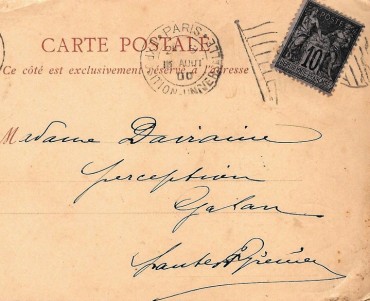 CARTE POSTALE
Ce côté est exclusivement réservé à l'adresse
PARIS
AOUT
00
10
Madame Dairaine
perception
Galan
hautes Pyrénées